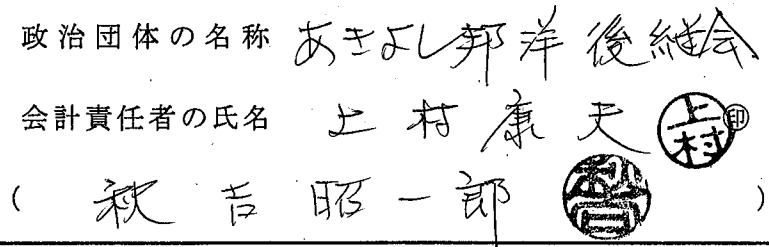 政治団体の名称 あきよし邦洋後継会
会計責任者の氏名 上村康夫 上村 印
( 秋吉昭一郎 秋吉 )